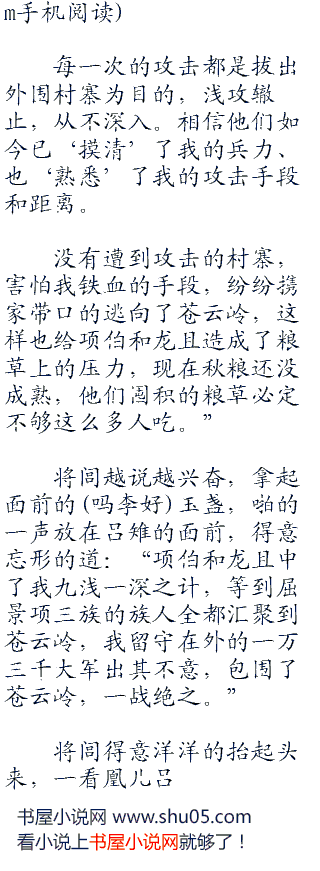 m手机阅读)
每一次的攻击都是拔出
外围村寨为目的，浅攻辙
止，从不深入。相信他们如
今已‘摸清’了我的兵力、
也‘熟悉’了我的攻击手段
和距离。
没有遭到攻击的村寨，
害怕我铁血的手段，纷纷携
家带口的逃向了苍云岭，这
样也给项伯和龙且造成了粮
草上的压力，现在秋粮还没
成熟，他们囤积的粮草必定
不够这么多人吃。”
将闾越说越兴奋，拿起
面前的(吗李好)玉盏，啪的
一声放在吕雉的面前，得意
忘形的道：“项伯和龙且中
了我九浅一深之计，等到屈
景项三族的族人全都汇聚到
苍云岭，我留守在外的一万
三千大军出其不意，包围了
苍云岭，一战绝之。”
将闾得意洋洋的抬起头
来，一看凰儿吕
书屋小说网 www.shu05.com
看小说上书屋小说网就够了！